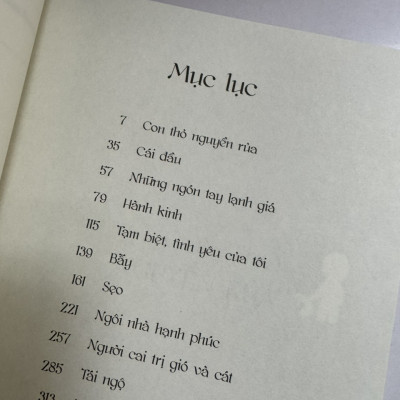 Mục lục
7 Con thỏ nguyền rủa
35 Cái đầu
57 Những ngón tay lạnh giá
79 Hành kinh
115 Tạm biệt, tình yêu của tôi
139 Bẫy
161 Sẹo
221 Ngôi nhà hạnh phúc
257 Người cai trị gió và cát
285 Tái ngộ
313